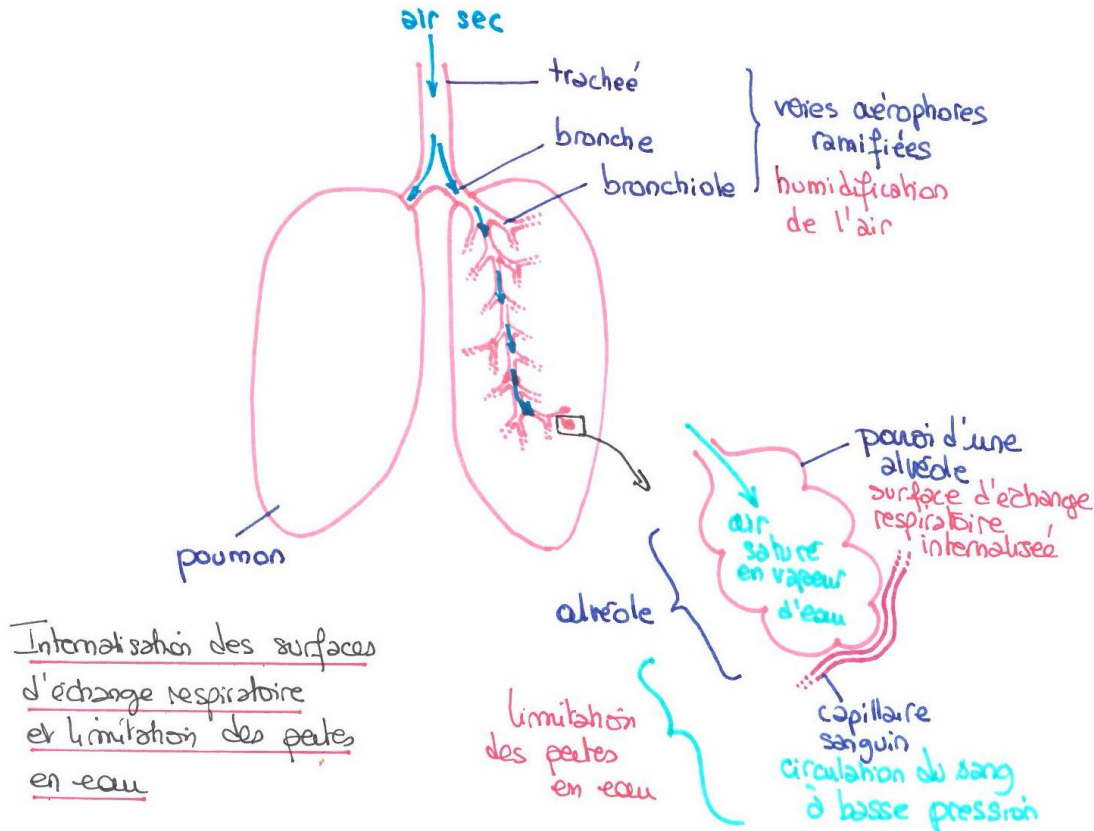 air sec
tracheé
bronche
bronchiole
voies aérophores
ramifiées
humidification
de l'air
poumon
paroi d'une
alvéole
surface d'échange
respiratoire
internalisée
air
saturé
en vapeur
d'eau
alvéole
capillaire
sanguin
circulation du sang
à basse pression
limitation
des pertes
en eau
Internalisation des surfaces
d'échange respiratoire
et limitation des pertes
en eau